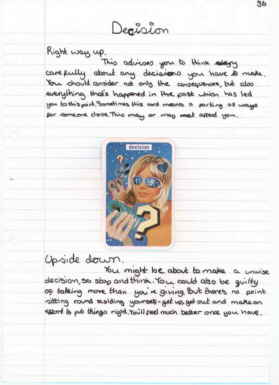 36
Decision
Right way up.
This advises you to think very
carefully about any decisions you have to make.
You should consider not only the consequences, but also
everything that's happened in the past which has led
you to this point. Sometimes this card means a parting of ways
for someone close. This may or may not affect you.
DECISION
?
Upside down.
You might be about to make a unwise
decision, so stop and think. You could also be guilty
of taking more than you're giving, but there's no point
sitting round scolding yourself - get up, get out and make an
effort to put things right. You'll feel much better once you have.